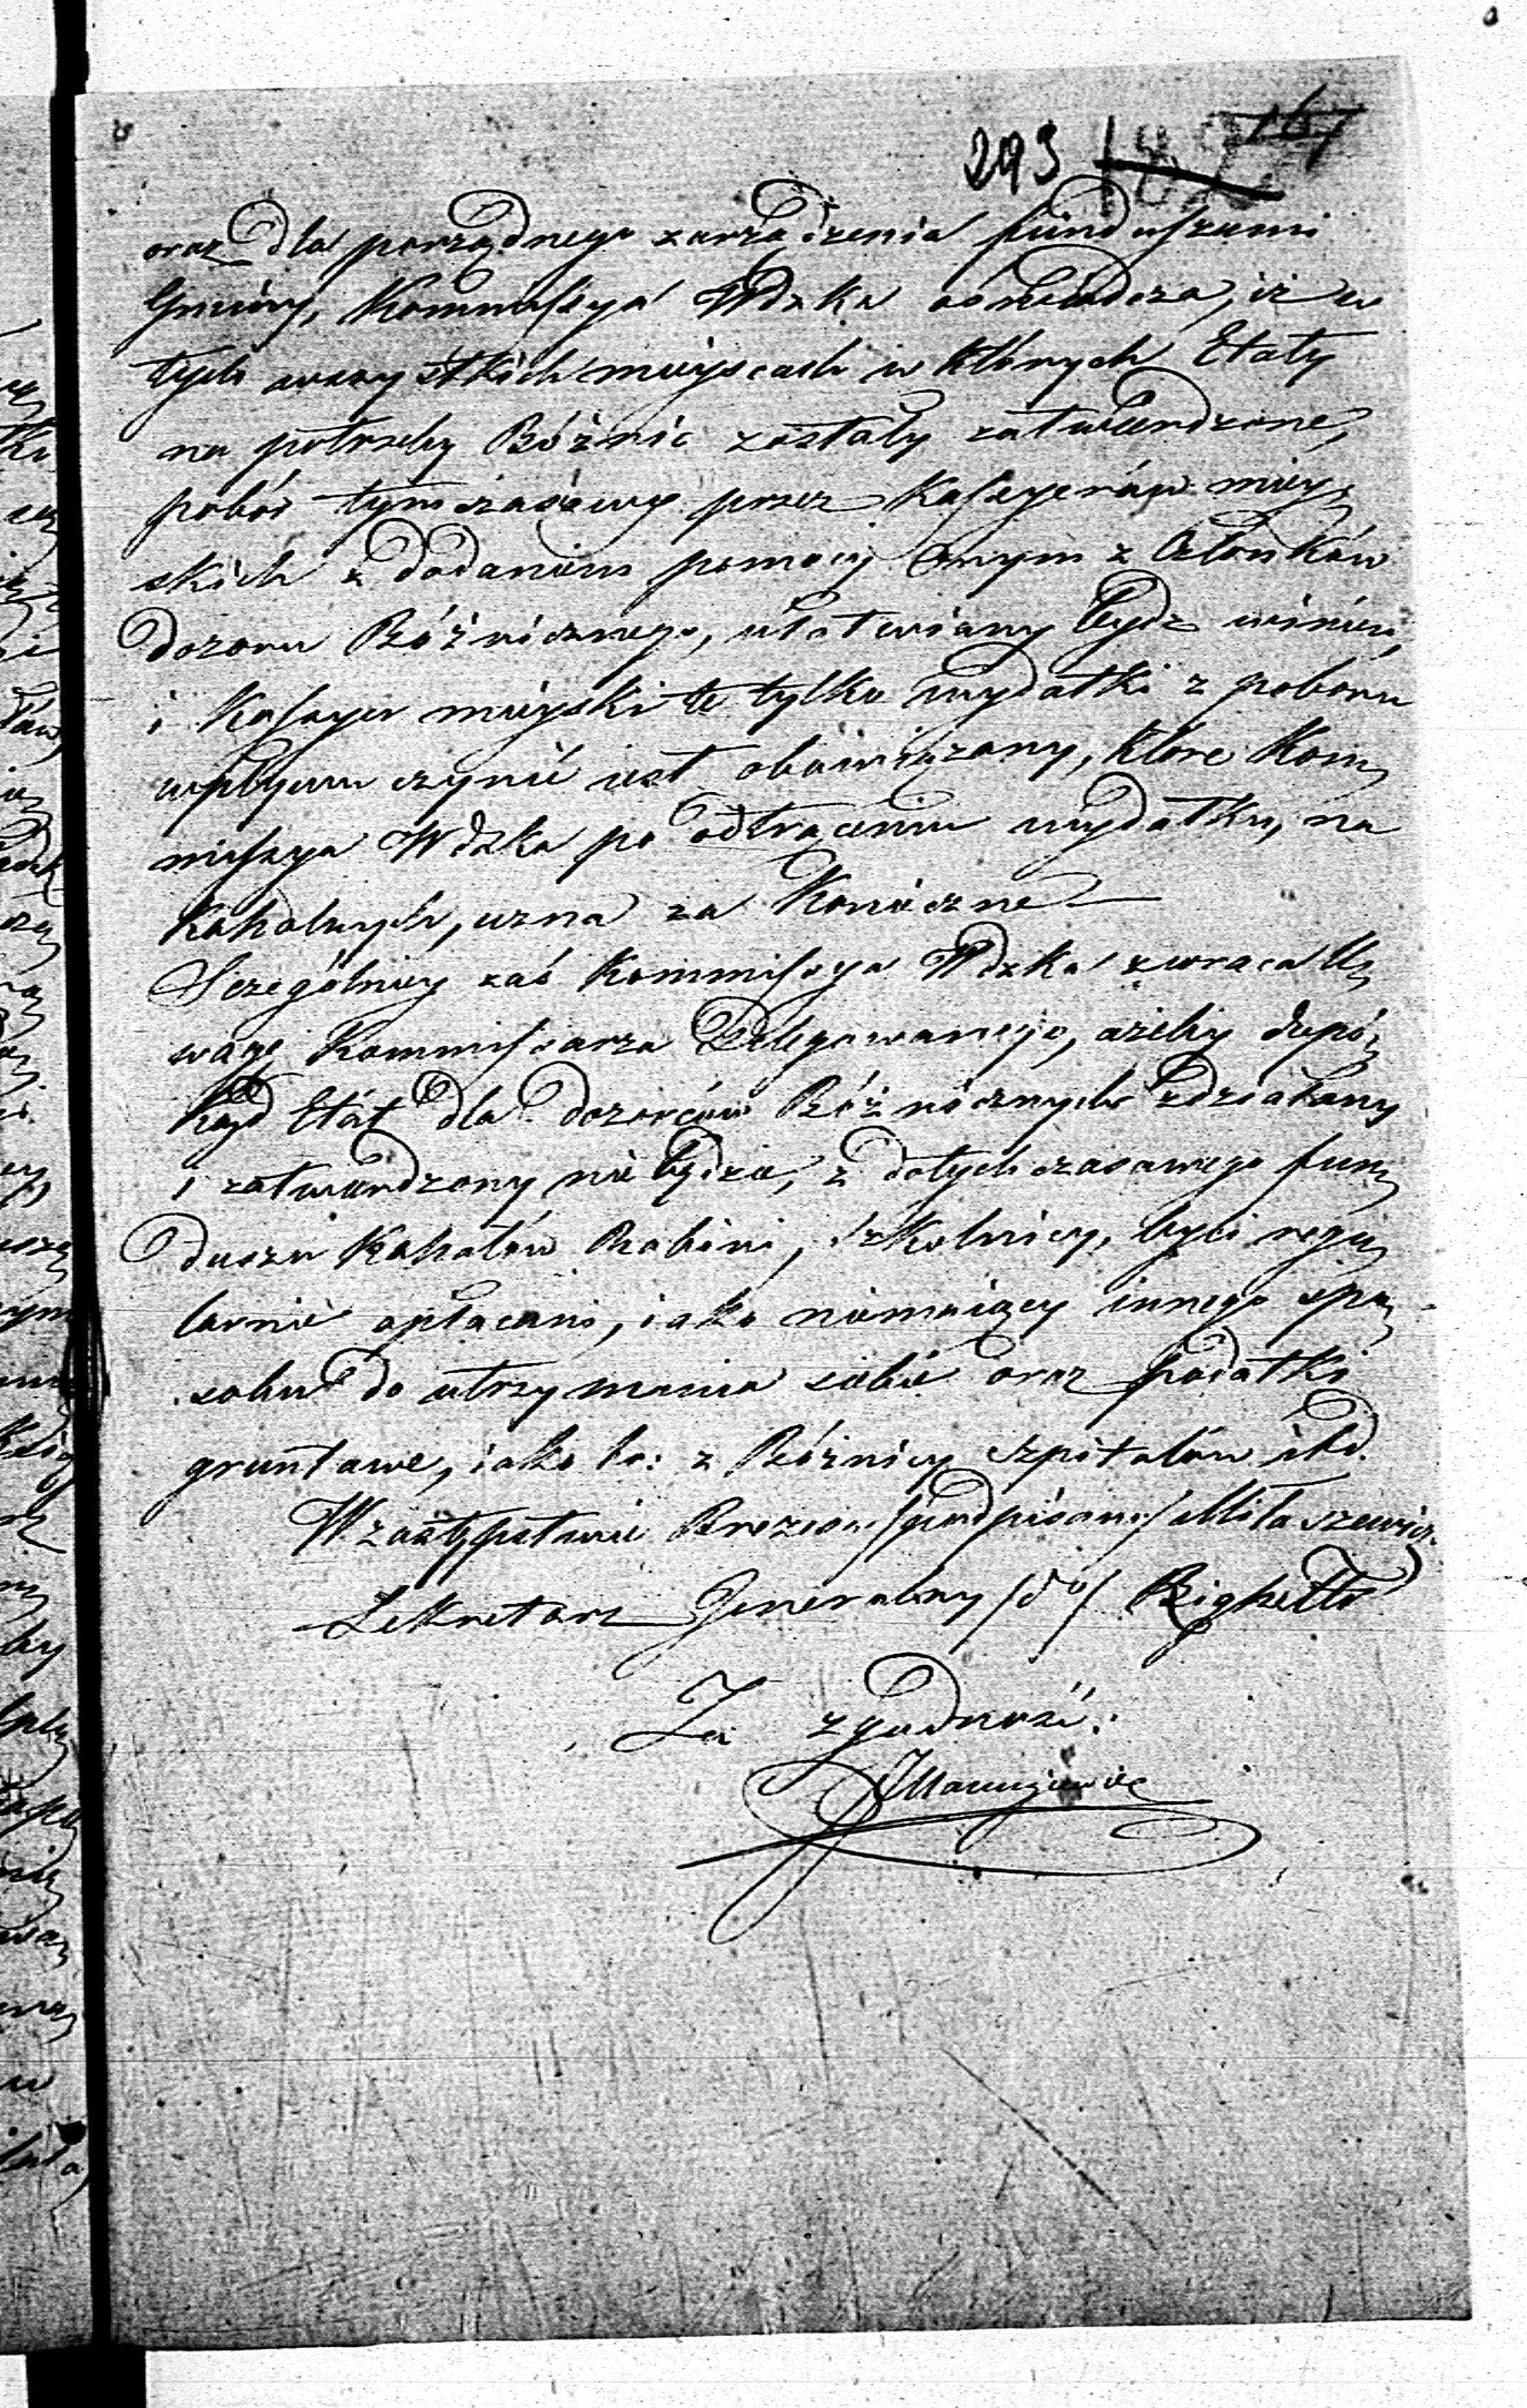 293 182 167
oraz dla porządnego zarządzenia funduszami
Gminy, Kommissya Wdzka oświadcza, iż w
tych wszystkich mieyscach w których Etaty
na potrzeby Bóżnic zostały zatwierdzone,
pobór tymczasowy przez Kassyerów miey-
skich z dodaniem pomocy onym z Członków
dozoru Bóżnicznego, ułatwiany bydz winien,
i Kassyer mieyski te tylko wydatki z poboru
wpływu czynić iest obowiązany, które Kom-
missya Wdzka po odtrąceniu wydatku, na
Kahalnych, uzna za Konieczne
Szczególniey zaś Kommissya Wdzka zwraca U-
wagę Kommissarza Delegowanego, ażeby dopó-
kąd Etat dla dozorców Bóżnicznych zdziałany
i zatwierdzony nie będzie, z dotychczasowego fun-
duszu Kahałów Rabini, Szkolnicy, byli regu-
larnie opłacani, iako niemaiący innego spo-
sobu do utrzymania siebie oraz podatki
gruntowe, iako to: z Bóżnicy szpitalów itd.
W zastępstwie Prezesa /podpisano/ Miłaszewicz
Sekretarz Generalny /do/
Za zgodność: